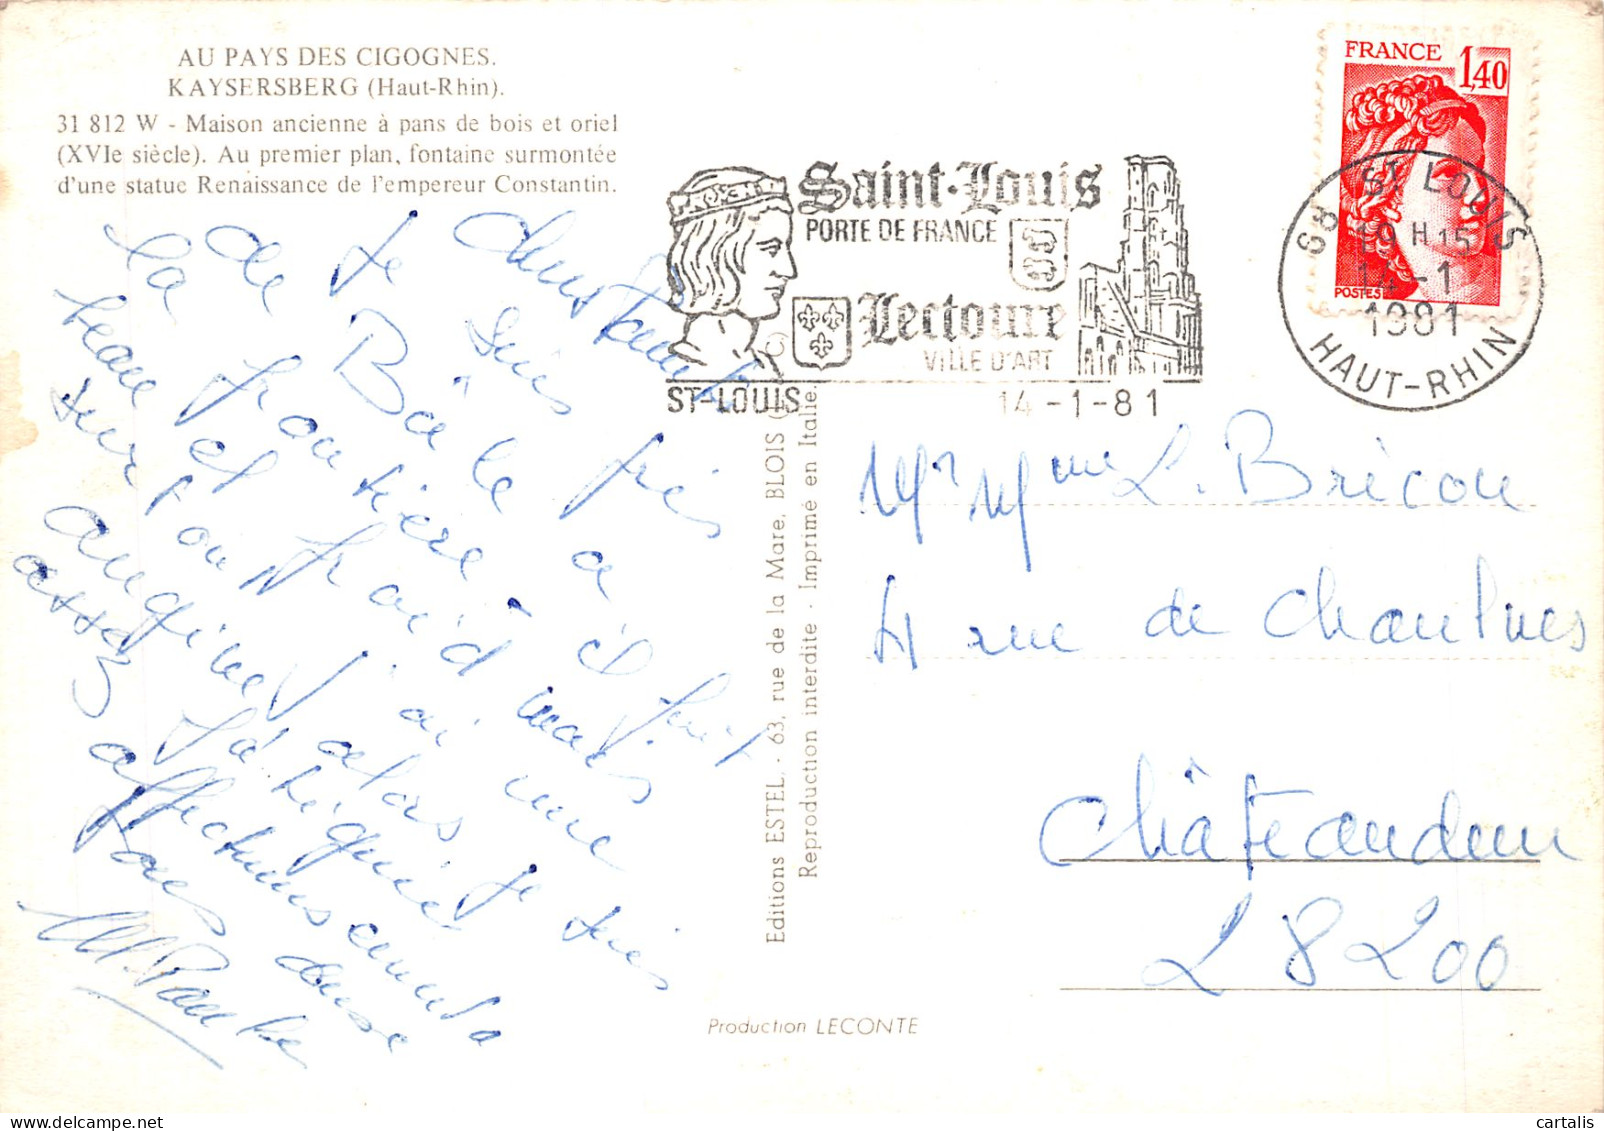 AU PAYS DES CIGOGNES.
KAYSERSBERG (Haut-Rhin).
31 812 W - Maison ancienne à pans de bois et oriel
(XVIe siècle). Au premier plan, fontaine surmontée
d'une statue Renaissance de l'empereur Constantin.
Je suis près
de Bâle à
la frontière il fait
beau et froid mais
surtout j'ai une
angine alors je suis
assez fatiguée
affectueuse
FRANCE 1,40
POSTES
68 ST LOUIS
19 H 15
14-1
1981
HAUT-RHIN
Saint-Louis
PORTE DE FRANCE
Lectoure
VILLE D'ART
ST-LOUIS 14-1-81
Editions ESTEL. - 63, rue de la Mare, BLOIS
Reproduction interdite - Imprimé en Italie.
Mr Mme L. Bricou
4 rue de
Châteaudun
28200
Production LECONTE
cartalis